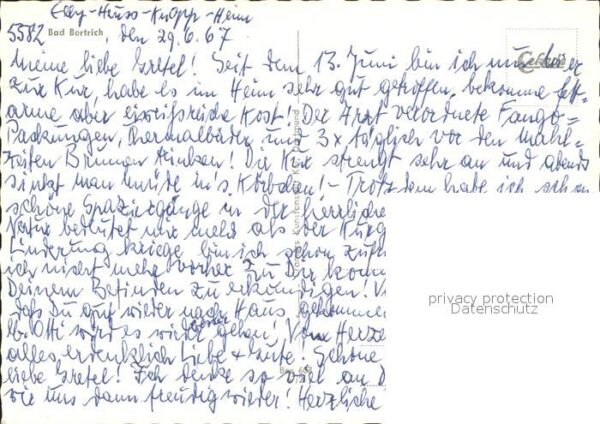 Elly-Heuss-Knapp-Heim
5582 Bad Bertrich, den 29.6.67.
Meine liebe Gretel! Seit dem 13. Juni bin ich nun hier
zur Kur, habe es im Heim sehr gut getroffen, bekomme fett-
arme aber eiweißreiche Kost! Der Arzt verordnete Fango=
Packungen, Thermalbäder und 3x täglich vor den Mahl-
zeiten Brunnen trinken! Die Kur strengt sehr an und abends
sinkt man müde in's Körbchen! - Trotzdem habe ich schon
schöne Spaziergänge in der herrliche
Natur bedeutet mir mehr als der Kurg
Linderung kriege, bin ich schon zufr
ich nicht mehr vorher zu Dir komm
Deinem Befinden zu erkundigen! V
daß Du gut wieder nach Haus gekommen
lb. Otti wird es wieder besser gehen! Von Herze
alles erdenklich Liebe + Gute! Schöne
liebe Gretel! Ich denke so viel an D
wie uns dann freudig wieder! Herzliche
privacy protection
Datenschutz